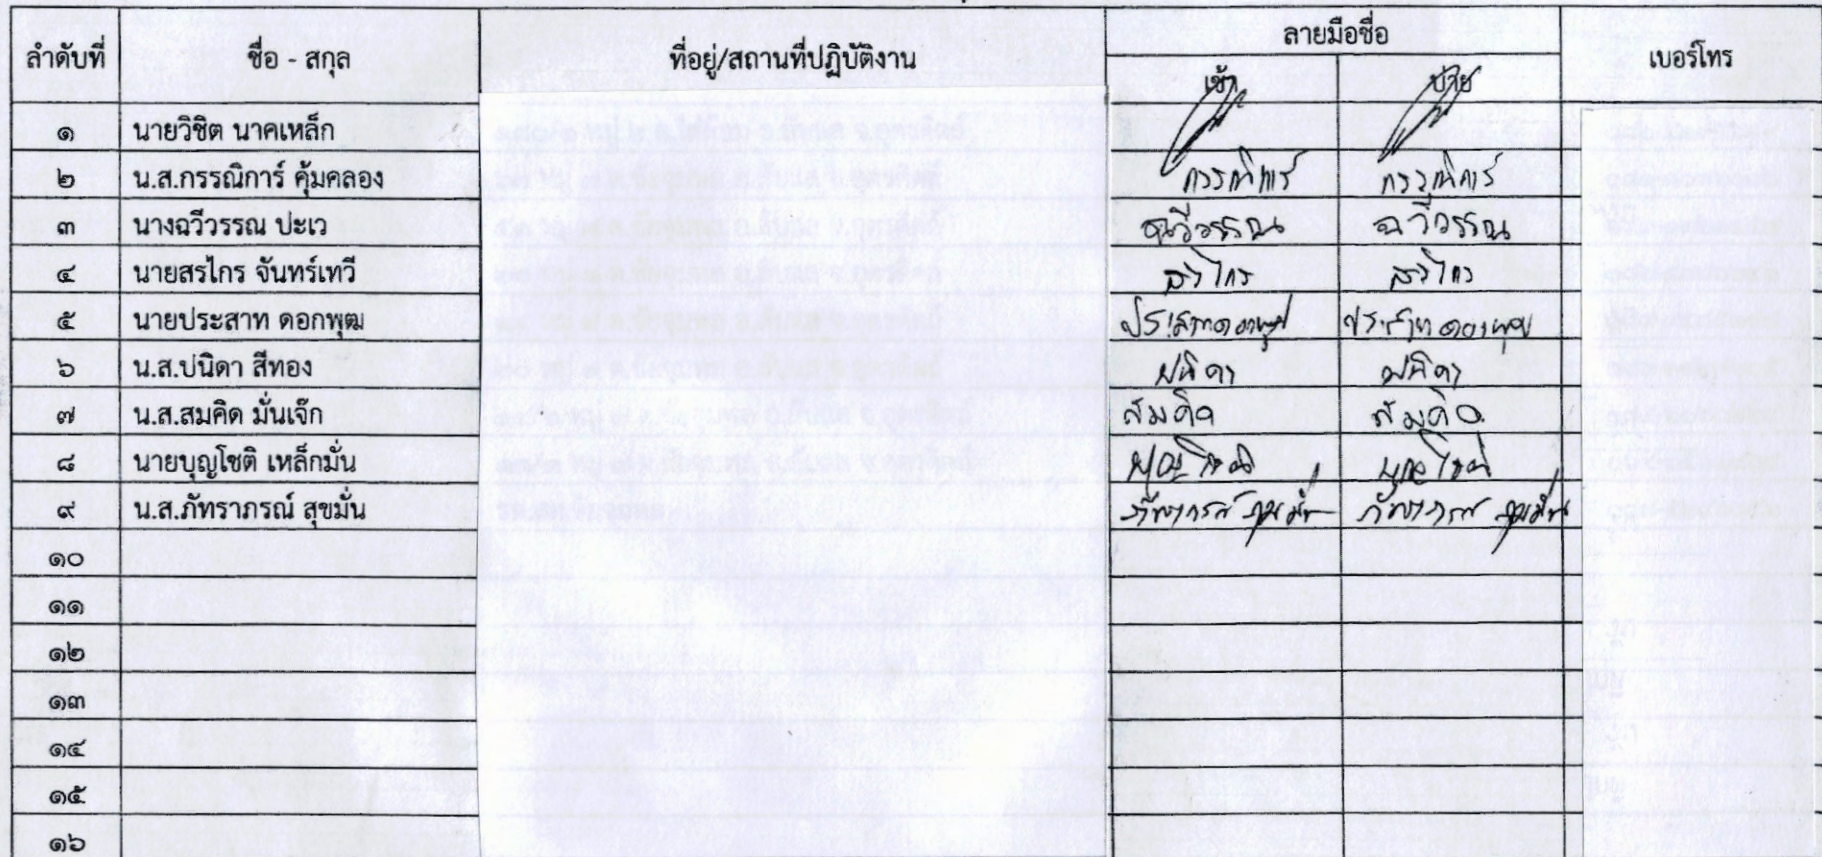 ลำดับที่ ชื่อ - สกุล ที่อยู่/สถานที่ปฏิบัติงาน ลายมือชื่อ เบอร์โทร
เช้า บ่าย
๑ นายวิชิต นาคเหล็ก
๒ น.ส.กรรณิการ์ คุ้มคลอง กรรณิการ์ กรรณิการ์
๓ นางฉวีวรรณ ปะเว ฉวีวรรณ ฉวีวรรณ
๔ นายสรไกร จันทร์เทวี สรไกร สรไกร
๕ นายประสาท ดอกพุฒ ประสาท ดอกพุฒ ประสาท ดอกพุฒ
๖ น.ส.ปนิดา สีทอง ปนิดา ปนิดา
๗ น.ส.สมคิด มั่นเจ๊ก สมคิด สมคิด
๘ นายบุญโชติ เหล็กมั่น บุญโชติ บุญโชติ
๙ น.ส.ภัทราภรณ์ สุขมั่น ภัทราภรณ์ สุขมั่น ภัทราภรณ์ สุขมั่น
๑๐
๑๑
๑๒
๑๓
๑๔
๑๕
๑๖